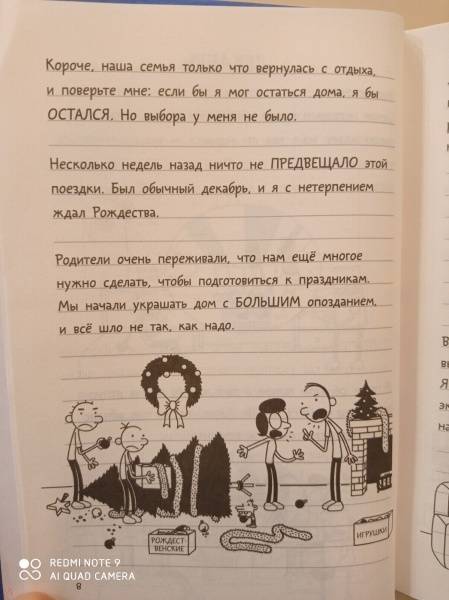 Короче, наша семья только что вернулась с отдыха,
и поверьте мне: если бы я мог остаться дома, я бы
ОСТАЛСЯ. Но выбора у меня не было.
Несколько недель назад ничто не ПРЕДВЕЩАЛО этой
поездки. Был обычный декабрь, и я с нетерпением
ждал Рождества.
Родители очень переживали, что нам ещё многое
нужно сделать, чтобы подготовиться к праздникам.
Мы начали украшать дом с БОЛЬШИМ опозданием,
и всё шло не так, как надо.
РОЖДЕСТ-
ВЕНСКИЕ
ИГРУШКИ
8
REDMI NOTE 9
AI QUAD CAMERA